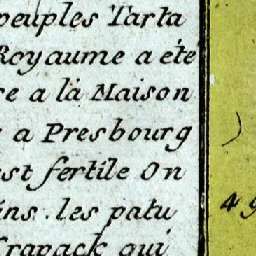 peuples Tarta
Royaume a eté
re a la Maison
a Presbourg
est fertile On
ins. les patu
Crapack qui
49